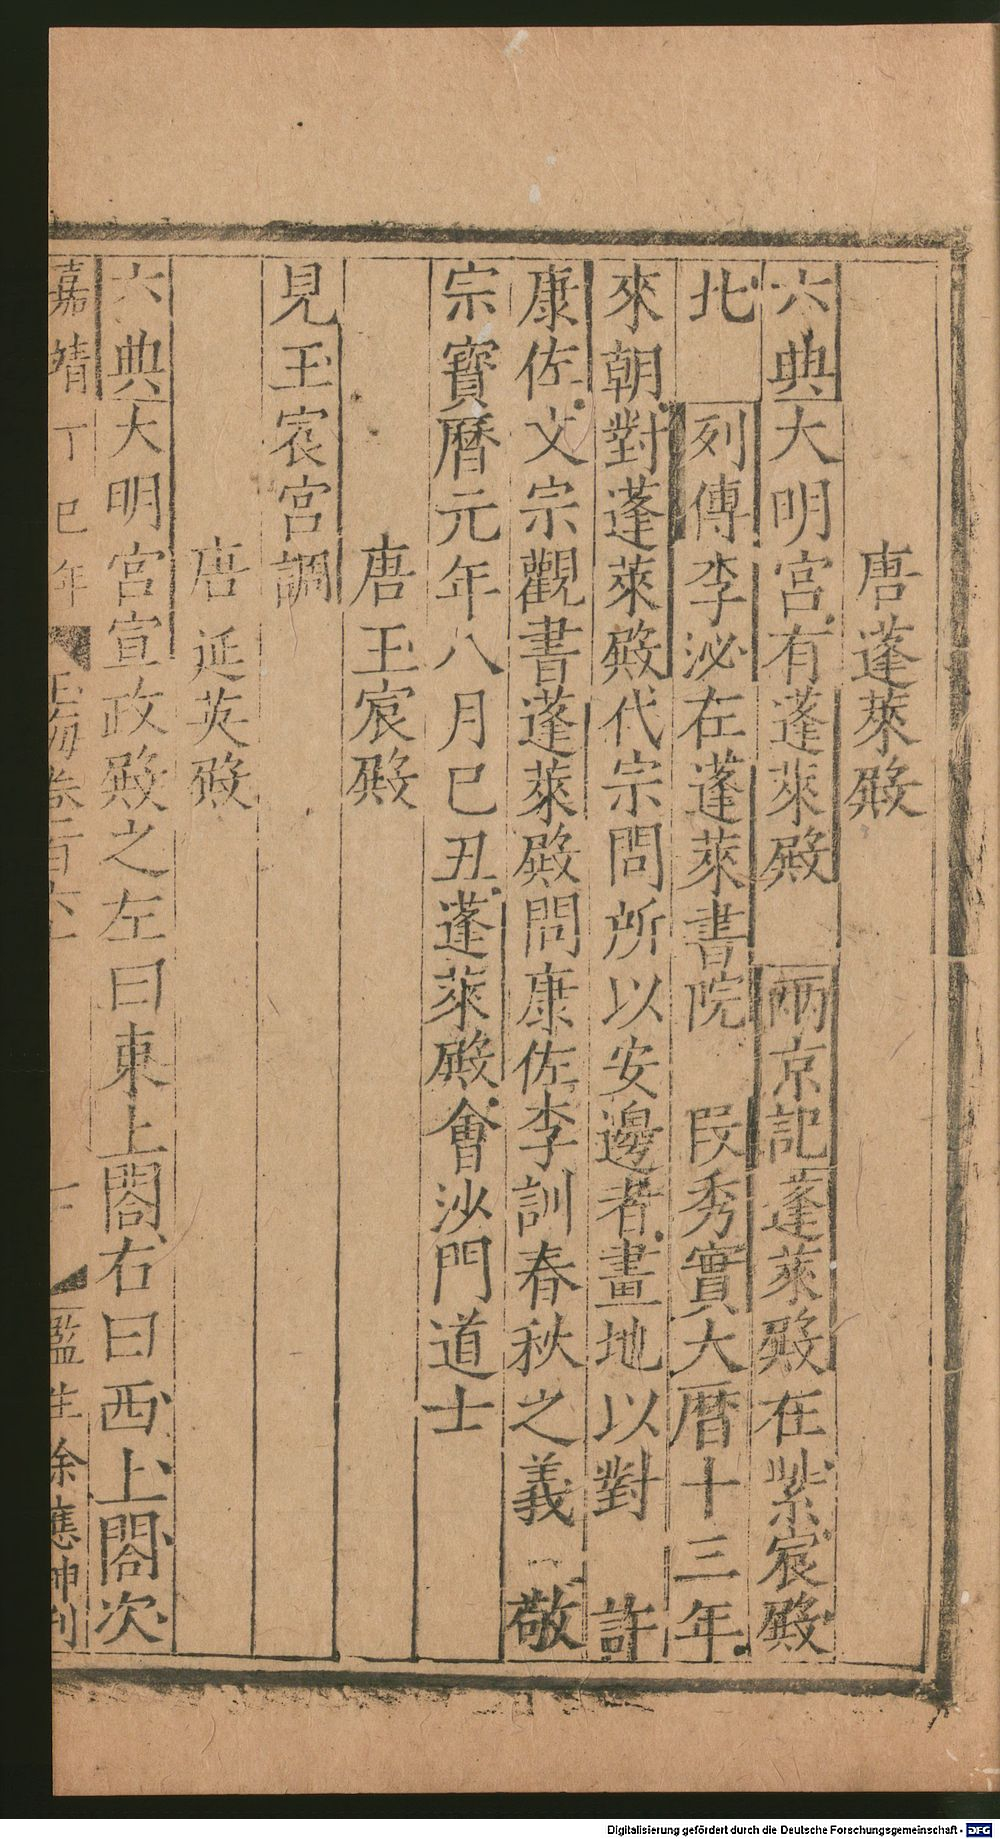 唐蓬萊殿
六典大明宮有蓬萊殿 兩京記蓬萊殿在紫宸殿
北 列傳李泌在蓬萊書院 段秀實大曆十三年
來朝對蓬萊殿代宗問所以安邊者畫地以對 許
康佐文宗觀書蓬萊殿問康佐李訓春秋之義 敬
宗寶曆元年八月巳丑蓬萊殿會沙門道士
唐玉宸殿
見玉宸宮調
唐延英殿
六典大明宮宣政殿之左曰東上閤右曰西上閤次
嘉靖丁巳年 玉海卷一百六十 十 監生余應紳刊
Digitalisierung gefördert durch die Deutsche Forschungsgemeinschaft - DFG